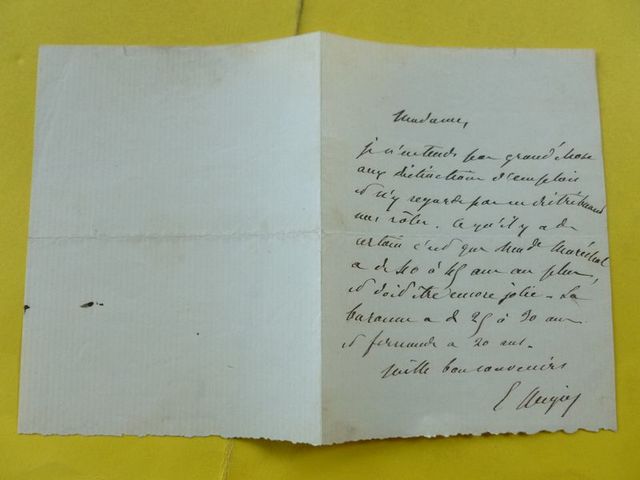 Madame,
je n'entends pas grand'chose
aux distinctions d'emplois
et n'y regarde pas en distribuant
mes rôles. Ce qu'il y a de
certain c'est que Mme Maréchal
a de 40 à 45 ans au plus,
et doit être encore jolie - La
baronne a de 25 à 30 ans
et fernande a 20 ans.
mille bons souvenirs
E Augier